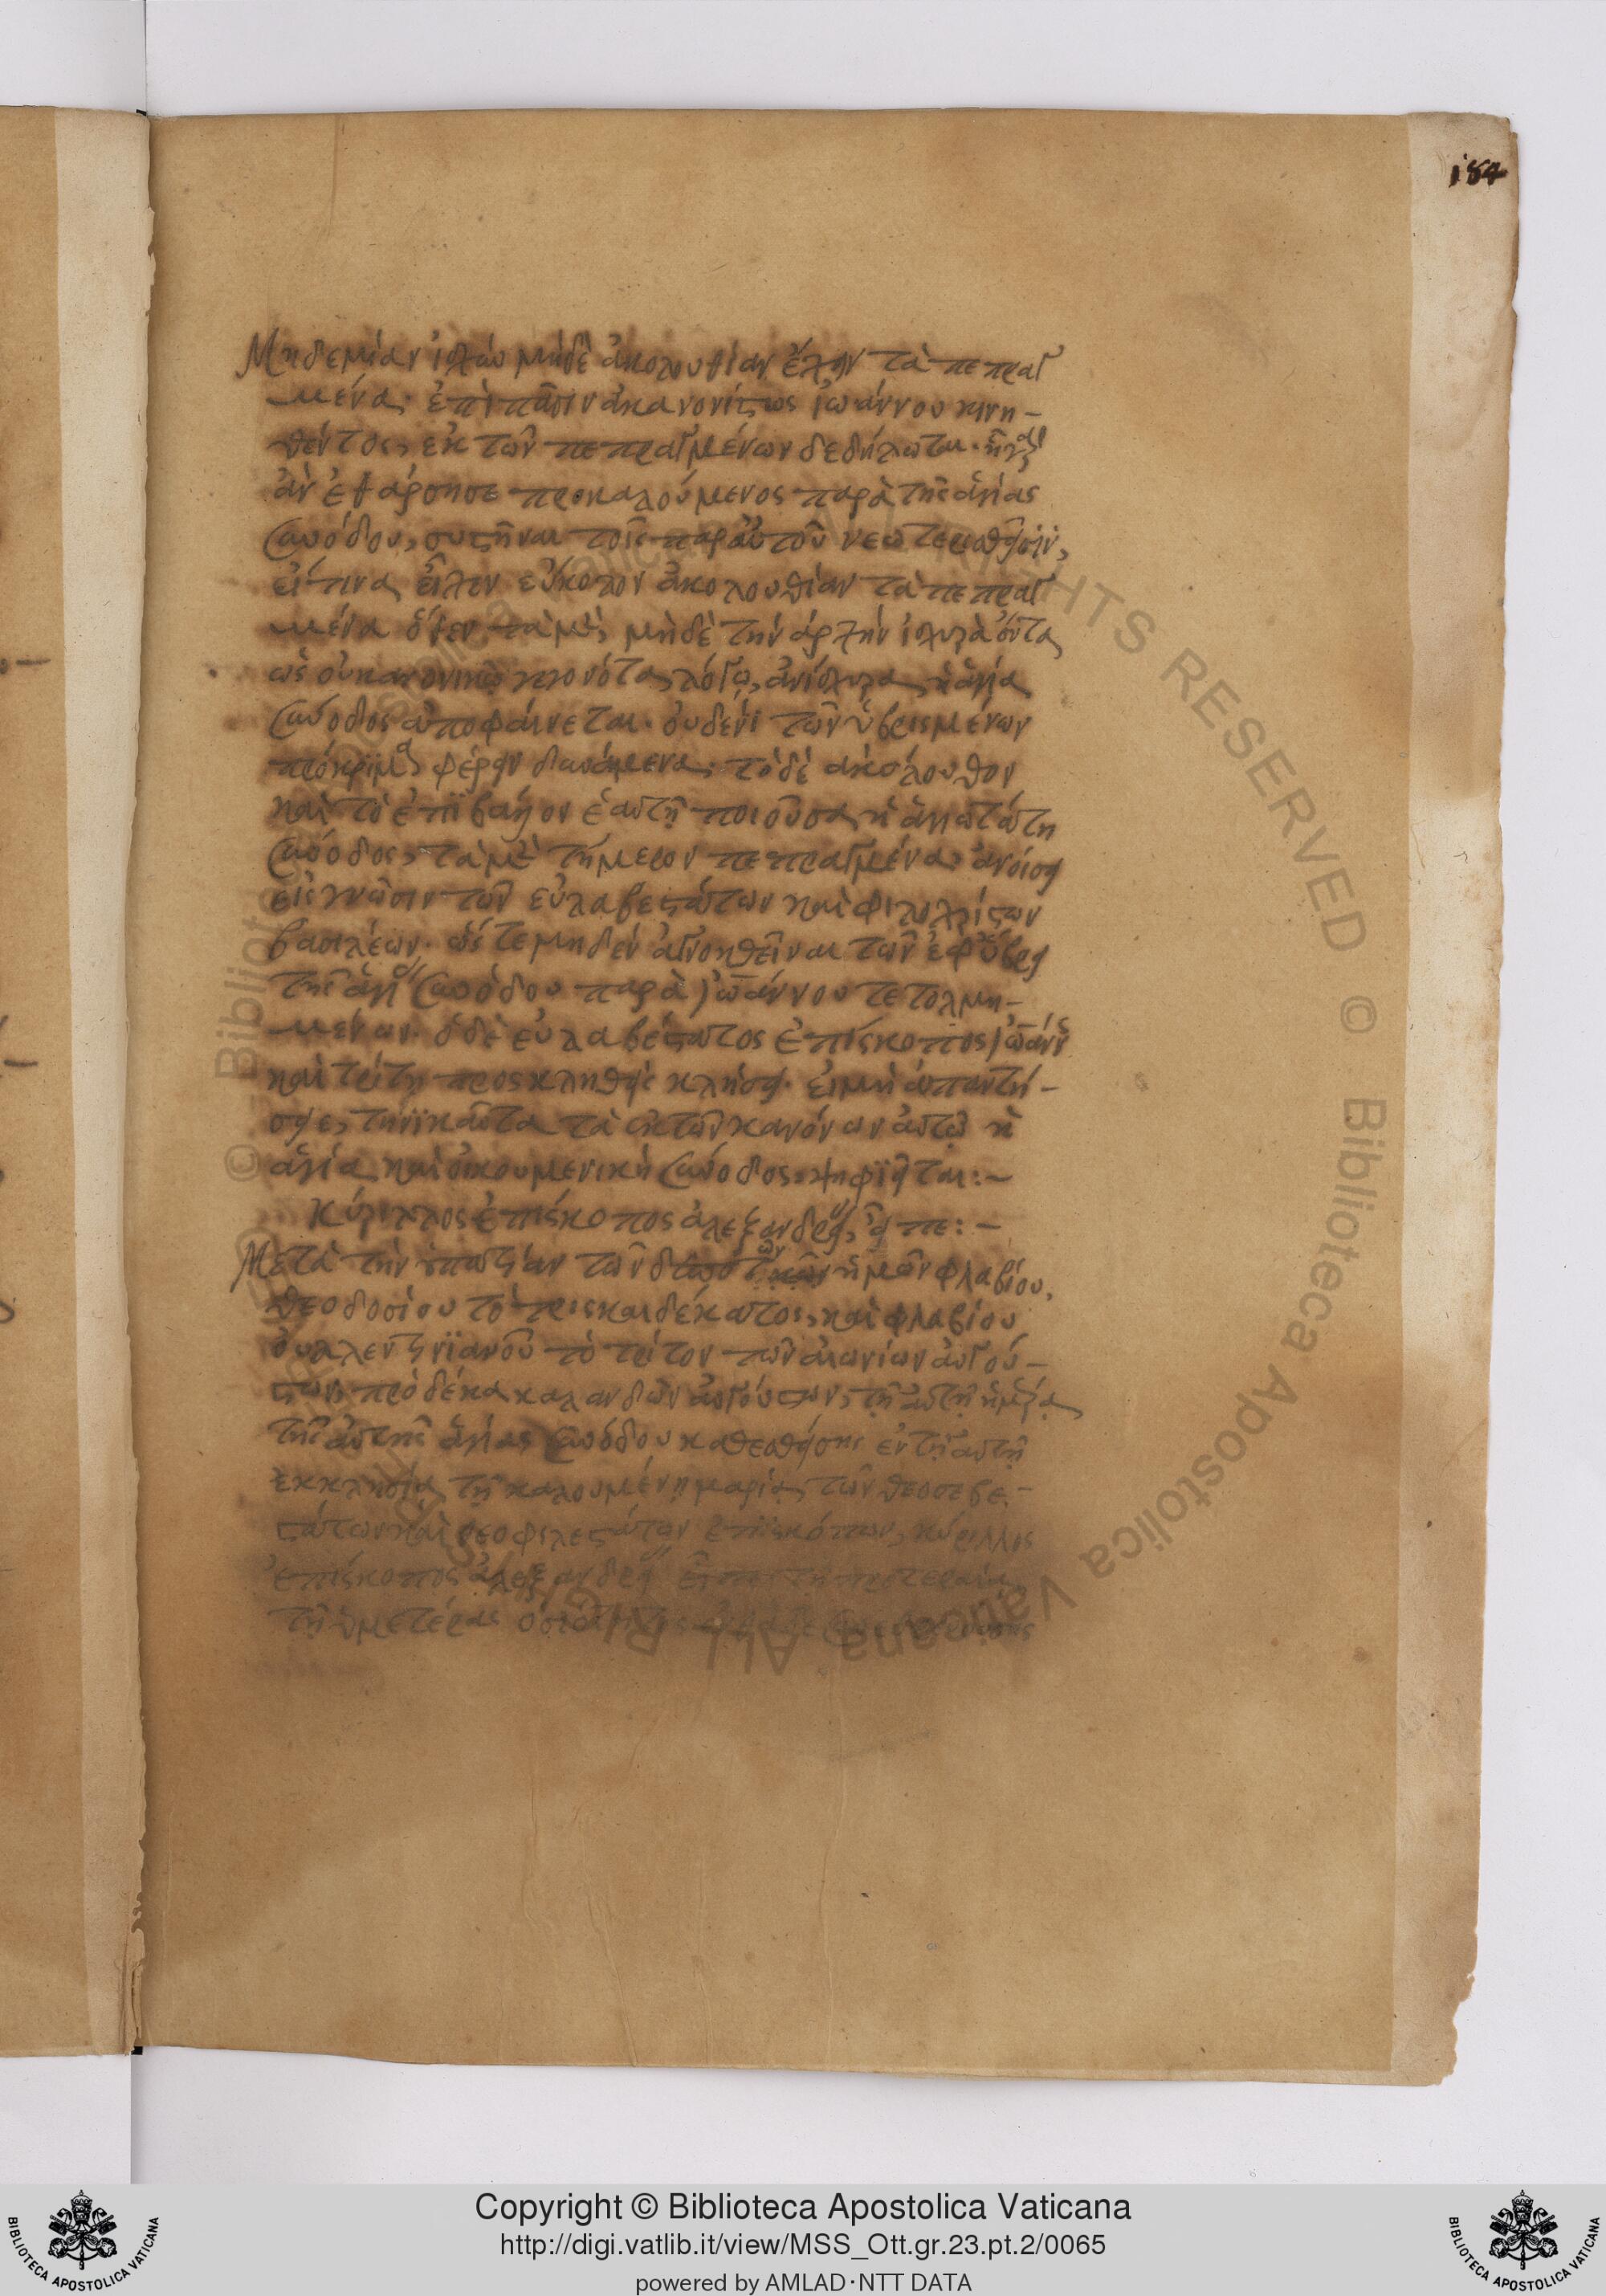 184
Μηδεμίαν ἰσχὺν μηδὲ ἀκολουθίαν ἔχειν τὰ πεπραγ
μένα· ἐπὶ πᾶσιν ἀκανονίστως ἰωάννου κινη-
θέντος, ἐκ τῶν πεπραγμένων δεδήλωται.
ἂν ἐθάρσησε προκαλούμενος παρὰ τῆς ἁγίας
συνόδου, συστῆναι τοῖς παραὐτοῦ νεωτερισθεῖσιν,
εἴ τινα εἶχεν εὔκολον ἀκολουθίαν τὰ πεπραγ
μένα ὅθεν τὰ μὲν μηδὲ τὴν ἀρχὴν ἰσχυρὰ ὄντα
ὡς οὐ κανονικῶ γεγονότα λόγω, ἀνίσχυρα ἡ ἁγία
σύνοδος ἀποφαίνεται· οὐδενὶ τῶν ὑβρισμένων
πρόκριμα φέρειν δυνάμενα· τὸ δὲ ἀκόλουθον
καὶ τὸ ἐπιβάλλον ἑαυτῆ ποιοῦσα ἡ ἁγιωτάτη
σύνοδος, τὰ μὲν τήμερον πεπραγμένα ἀνοίσει
εἰς γνῶσιν τῶν εὐλαβεστάτων καὶ φιλοχρίστων
βασιλέων· ὥστε μηδὲν ἀγνοηθῆναι τῶν ἐφ' ὕβρει
τῆς ἁγί συνόδου παρὰ ἰωάννου τετολμη-
μένων· ὁ δὲ εὐλαβέστατος ἐπίσκοπος ἰωάνν
καὶ τρίτη προσκληθεὶς κλήσει· εἰ μὴ ἀπαντή-
σειε, τηνικαῦτα τὰ ἐκ τῶν κανόνων αὐτῶ ἡ
ἁγία καὶ οἰκουμενικὴ σύνοδος ψηφιεῖται:-
κύριλλος ἐπίσκοπος ἀλεξανδρεί, εἶπε:-
Μετὰ τὴν ὑπατείαν τῶν ἡμῶν φλαβίου
θεοδοσίου τὸ τρισκαιδέκατος, καὶ φλαβίου
οὐαλλεντινϊανοῦ τὸ τρίτον τῶν αἰωνίων αὐγού-
στων, πρὸ δέκα καλανδῶν αὐγούστων, τῆ αὐτῆ ἡμέρα
τῆς αὐτῆς ἁγίας συνόδου καθεσθείσης ἐν τῆ αὐτῆ
ἐκκλησία τῆ καλουμένη μαρία τῶν θεοσεβε-
στάτων καὶ θεοφιλεστάτων ἐπισκόπων, κύριλλος
ἐπίσκοπος ἀλεξανδρεί εἶπε τῆ προτεραία
τῆς ὑμετέρας ὁσιότητος
Copyright © Biblioteca Apostolica Vaticana
http://digi.vatlib.it/view/MSS_Ott.gr.23.pt.2/0065
powered by AMLAD·NTT DATA